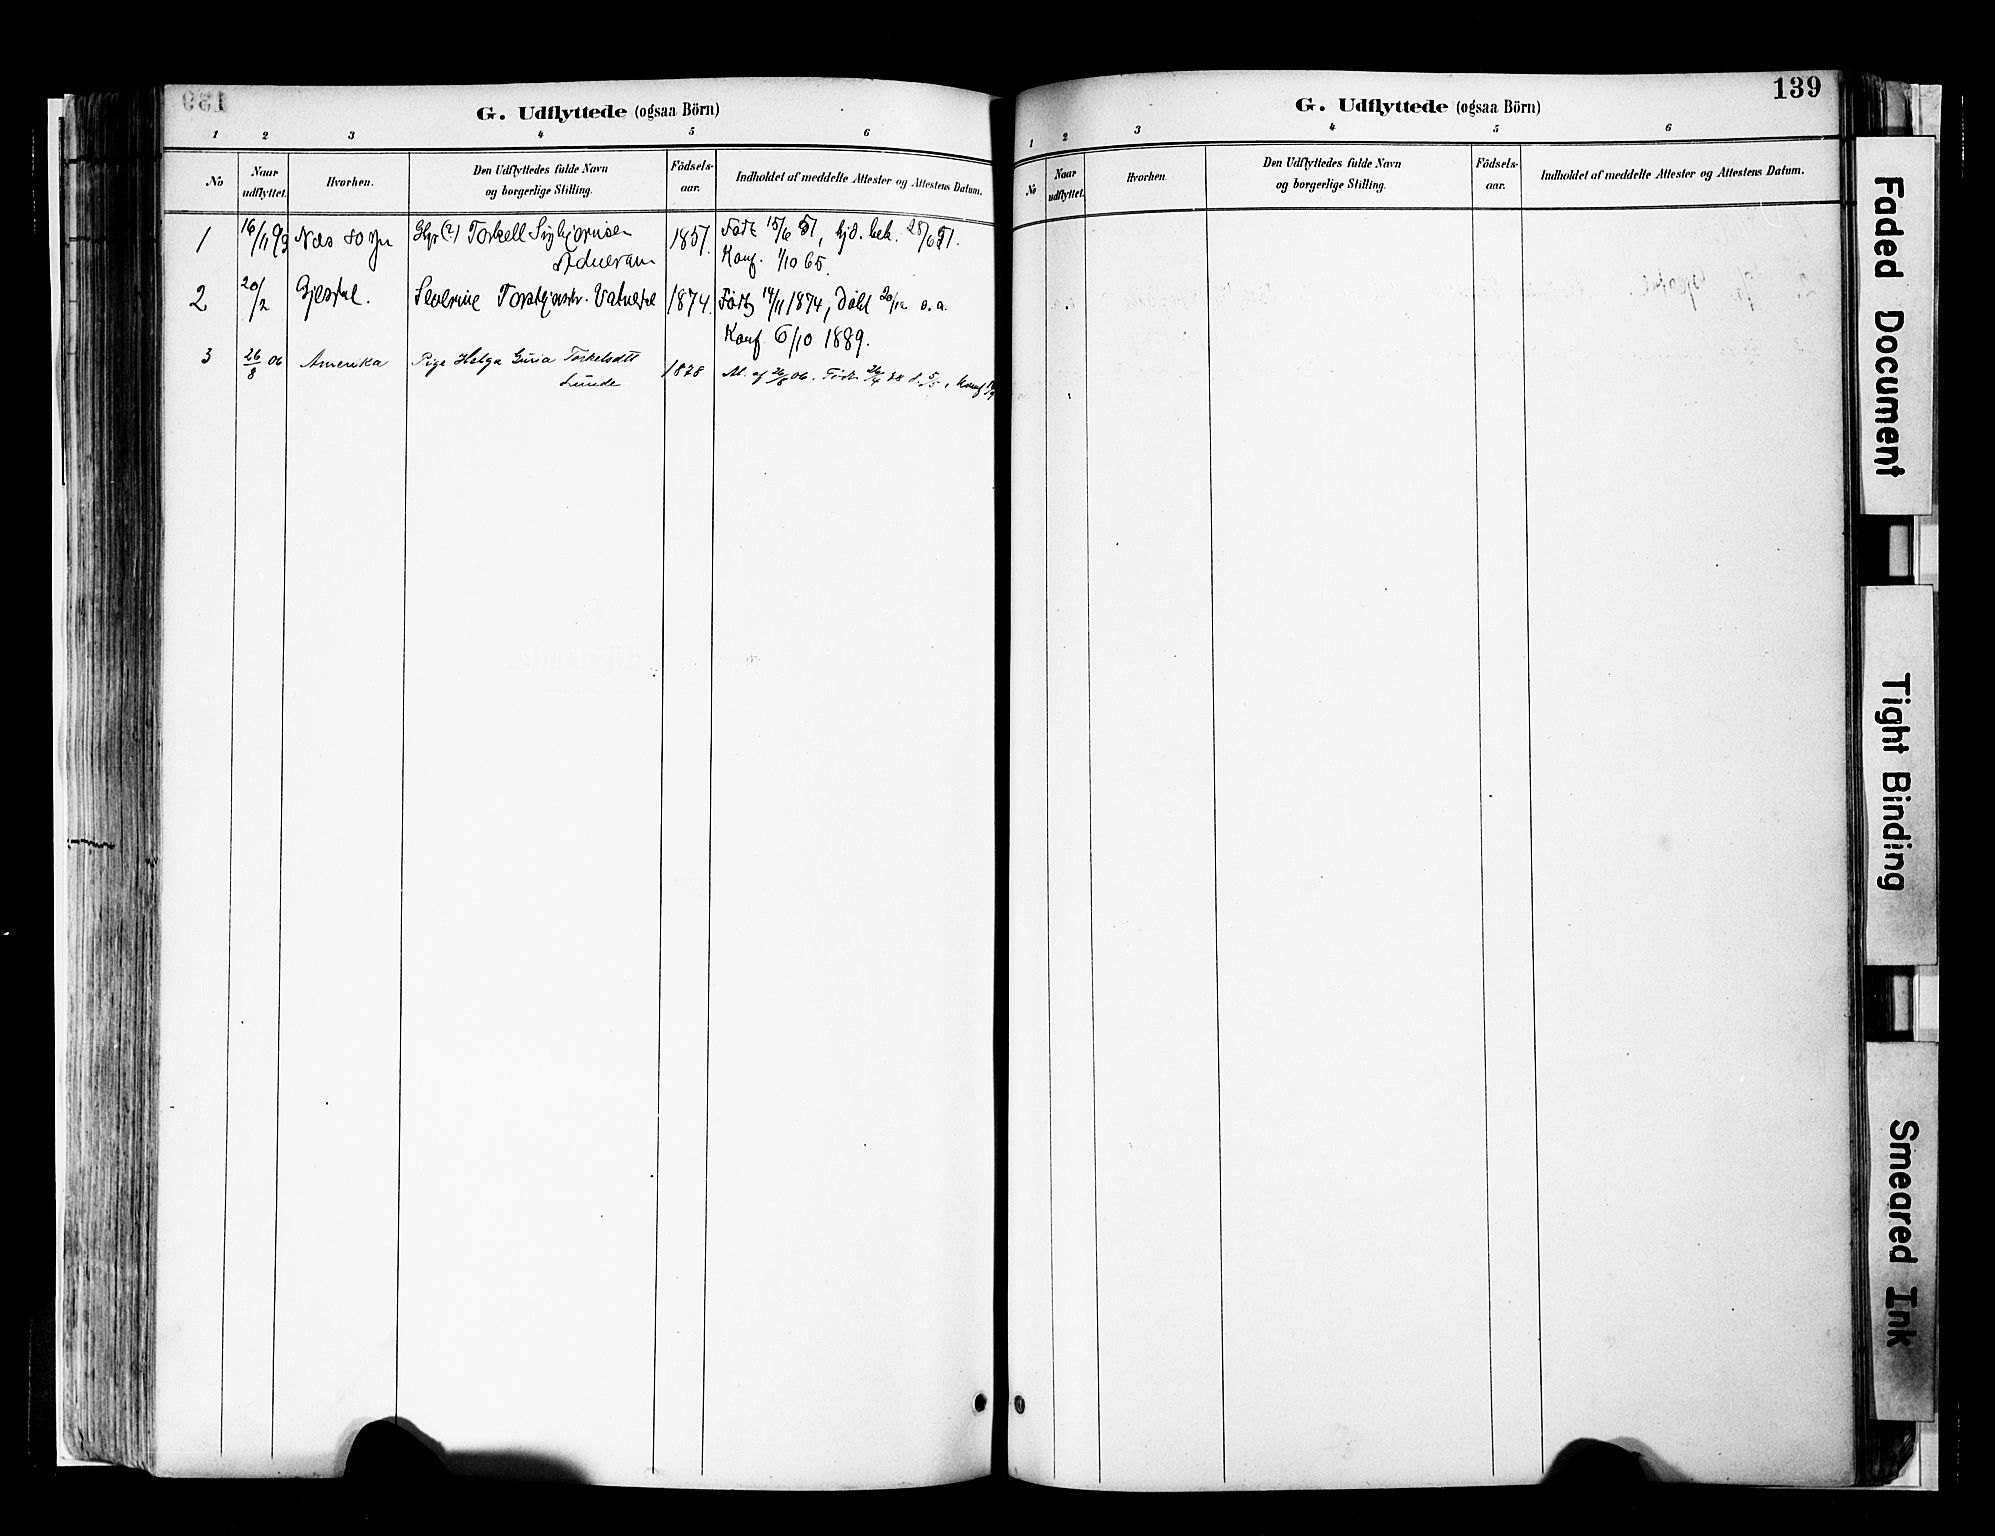 G. Udflyttede (ogsaa Börn)
1 2 3 4 5 6
No Naar udflyttet. Hvorhen. Den Udflyttedes fulde Navn og borgerlige Stilling. Födsels-aar. Indholdet af meddelte Attester og Attestens Datum.
1 16/11 93 Næs sogn Torkell Sigbjørnsen 1857. Født 15/6 51, hjd. bek. 28/6 51.
Konf. 1/10 65.
2 20/2 Gjesdal. Severine Torstjensdr. Vatnedal 1874. Født 14/11 1874, Døbt 20/12 s. a.
Konf. 6/10 1889.
3 26/8 06 Amerika Pige Helga Guria Torkelsdtt
Lunde 1878 At. af 26/8 06. Født 26/4 78 d. 5/5, Konf
139
G. Udflyttede (ogsaa Börn)
1 2 3 4 5 6
No Naar udflyttet. Hvorhen Den Udflyttedes fulde Navn og borgerlige Stilling. Födsels-aar. Indholdet af meddelte Attester og Attestens Datum.
Faded Document
Tight Binding
Smeared Ink